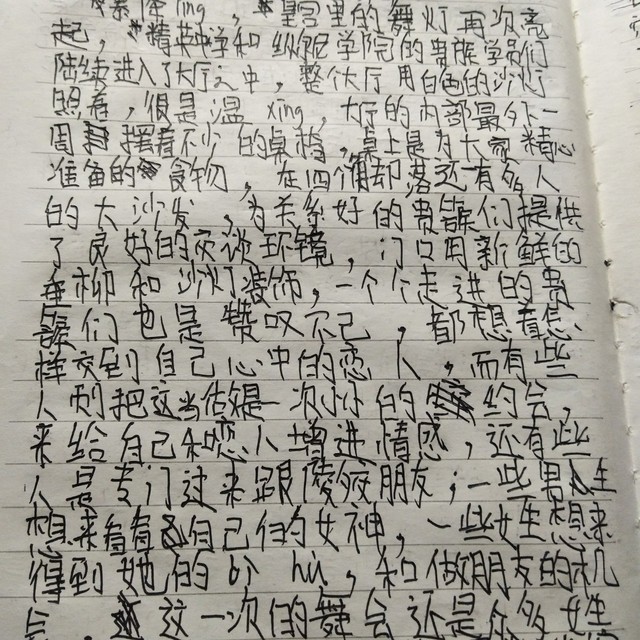 ing，皇宫里的舞灯再次亮
起，精英学和纵航学院的贵族学员们
陆续进入了大厅之中，整个大厅用白色的沙灯
照着，很是温 xīng，大厅的内部最外一
周摆着不少的桌椅，桌上是为大家精心
准备的食物，在四个角却落还有多人
的大沙发，为关系好的贵族们提供
了良好的交谈环镜，门口用新鲜的
柳和沙灯装饰，一个个走进的贵
族们也是赞叹不己，都想着怎
样交到自己心中的恋人，而有些
人则把这当做是一次小小的约会，
来给自己和恋人增进情感，还有些
人是专门过来跟陵 朋友；一些男生
想来看看自己们的女神，一些女生想来
得到她的bì hù，和做朋友的机
会，这一次的舞会还是众多女生